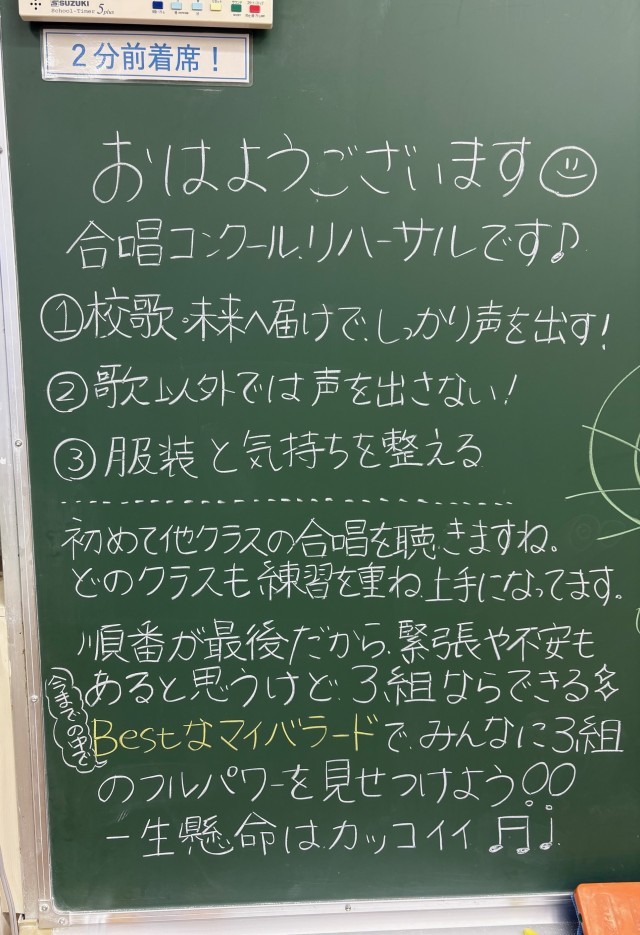 SUZUKI
School-Timer 5plus
2分前着席！
おはようございます
合唱コンクール、リハーサルです♪
①校歌・未来へ届けで、しっかり声を出す！
②歌以外では声を出さない！
③服装と気持ちを整える
初めて他クラスの合唱を聴きますね。
どのクラスも練習を重ね、上手になってます。
順番が最後だから、緊張や不安も
あると思うけど、3組ならできる
今までの中で
Bestなマイバラードで、みんなに3組
のフルパワーを見せつけよう!!
一生懸命は、カッコイイ♫♩